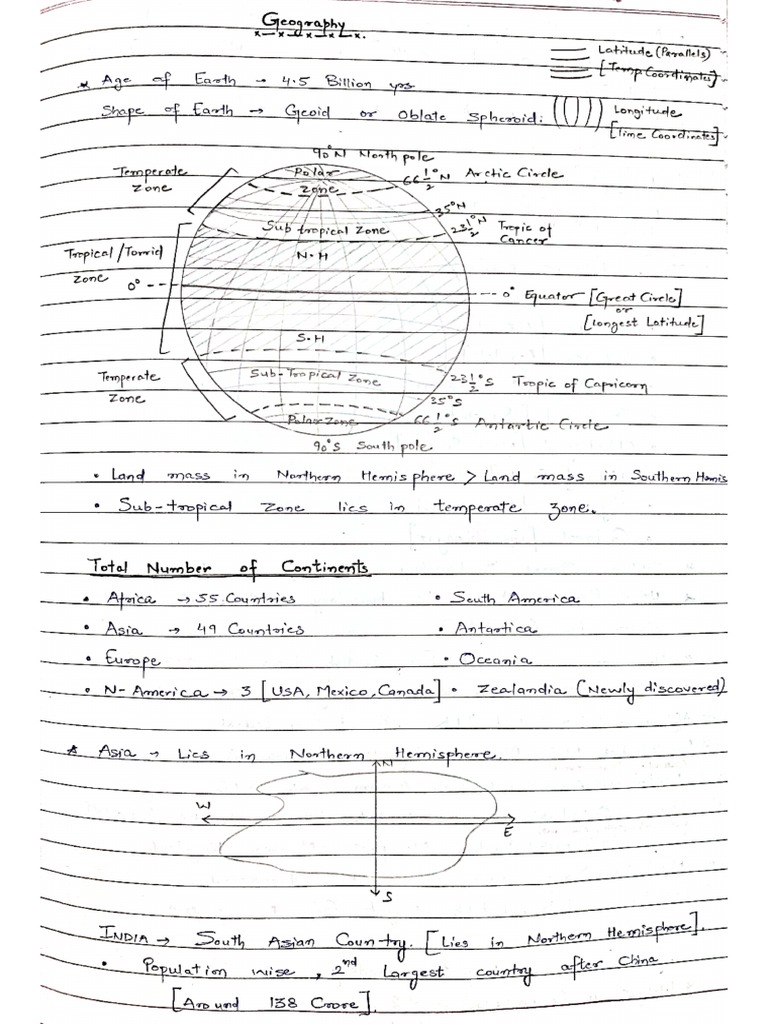 Geography
Latitude (Parallels)
[Temp Coordinates]
* Age of Earth → 4.5 Billion yrs
Shape of Earth → Geoid or Oblate Spheroid:
Longitude
[Time Coordinates]
90°N North pole
Temperate Zone
Polar Zone
66 1/2°N Arctic Circle
35°N
23 1/2°N Tropic of Cancer
Sub tropical Zone
N.H
Tropical/Torrid Zone
0°
0° Equator [Great Circle]
or
[Longest Latitude]
S.H
Temperate Zone
Sub-Tropical Zone
23 1/2°S Tropic of Capricorn
35°S
Polar Zone
66 1/2°S Antartic Circle
90°S South pole
• Land mass in Northern Hemisphere > Land mass in Southern Hemis
• Sub-tropical Zone lies in temperate zone.
Total Number of Continents
• Africa → 55 Countries
• South America
• Asia → 49 Countries
• Antartica
• Europe
• Oceania
• N-America → 3 [USA, Mexico, Canada]
• Zealandia (Newly discovered)
* Asia → Lies in Northern Hemisphere.
N
W
E
S
INDIA → South Asian Country. [Lies in Northern Hemisphere].
• Population wise, 2nd Largest country after China
[Around 138 Crore].